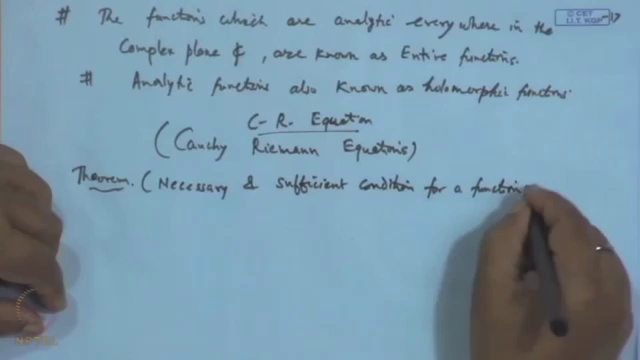 © CET
I.I.T. KGP
# The functions which are analytic everywhere in the
Complex plane ₵, are known as Entire functions.
# Analytic functions also known as holomorphic functions.
C-R. Equation
(Cauchy Riemann Equations)
Theorem. (Necessary & sufficient condition for a function
NPTEL